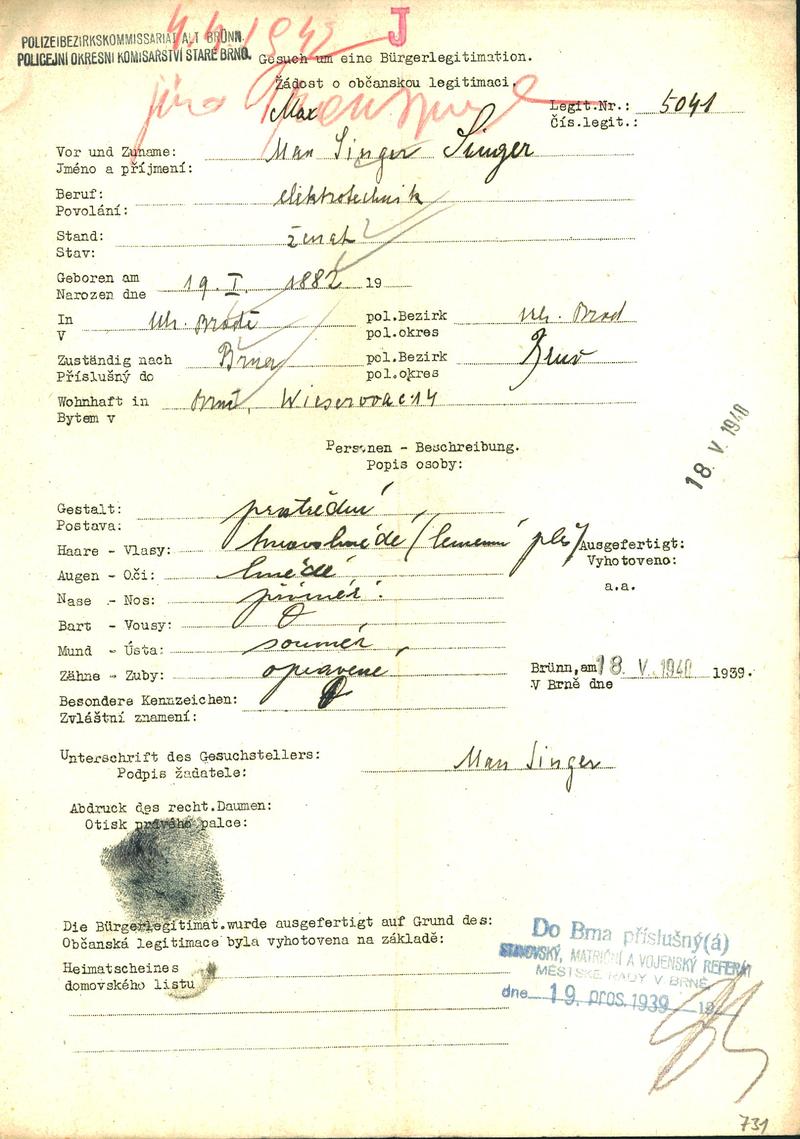 J
4.4.1942
POLIZEIBEZIRKSKOMMISSARIAT ALT BRÜNN.
POLICEJNÍ OKRESNÍ KOMISAŘSTVÍ STARÉ BRNO.
Gesuch um eine Bürgerlegitimation.
Žádost o občanskou legitimaci.
Max
Legit.Nr.: 5041
Čís.legit.:
Vor und Zuname: Max Singer Singer
Jméno a příjmení:
Beruf: elektrotechnik
Povolání:
Stand: ženat
Stav:
Geboren am 19. I. 1882 19
Narozen dne
In Uh. Brodě pol.Bezirk Uh. Brod
V pol.okres
Zuständig nach Brna pol.Bezirk Brno
Příslušný do pol.okres
Wohnhaft in Brně, Wieserova č. 14
Bytem v
18. V. 1940
Personen - Beschreibung.
Popis osoby:
Gestalt: prostřední
Postava:
Haare - Vlasy: tmavohnědé (temenní pleš)
Ausgefertigt:
Vyhotoveno:
Augen - Oči: hnědé
a.a.
Nase - Nos: přiměř.
Bart - Vousy: 0
Mund - Ústa: souměr.
Zähne - Zuby: opravené
Brünn, am 18. V. 1940 1939.
V Brně dne
Besondere Kennzeichen: 0
Zvláštní znamení:
Unterschrift des Gesuchstellers: Max Singer
Podpis žadatele:
Abdruck des recht.Daumen:
Otisk pravého palce:
Die Bürgerlegitimat.wurde ausgefertigt auf Grund des:
Občanská legitimace byla vyhotovena na základě:
Heimatscheines
domovského listu
Do Brna příslušný(á)
STAVOVSKÝ, MATRIČNÍ A VOJENSKÝ REFERÁT
MĚSTSKÉ RADY V BRNĚ
dne 19. pros. 1939 19
731